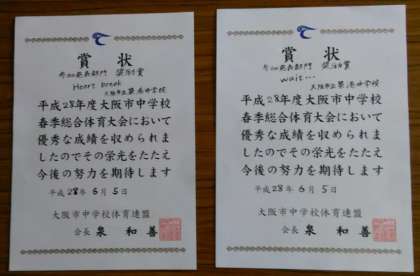 賞状
参加発表部門 奨励賞
Heart break
大阪市立築港中学校
平成28年度大阪市中学校
春季総合体育大会において
優秀な成績を収められま
したのでその栄光をたたえ
今後の努力を期待します
平成 28年 6月 5日
大阪市中学校体育連盟
会長 泉 和善
賞状
参加発表部門 奨励賞
wait...
大阪市立築港中学校
平成28年度大阪市中学校
春季総合体育大会において
優秀な成績を収められま
したのでその栄光をたたえ
今後の努力を期待します
平成 28年 6月 5日
大阪市中学校体育連盟
会長 泉 和善